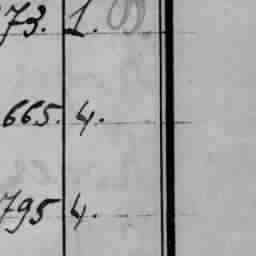 73. 1.
665. 4.
795 4.